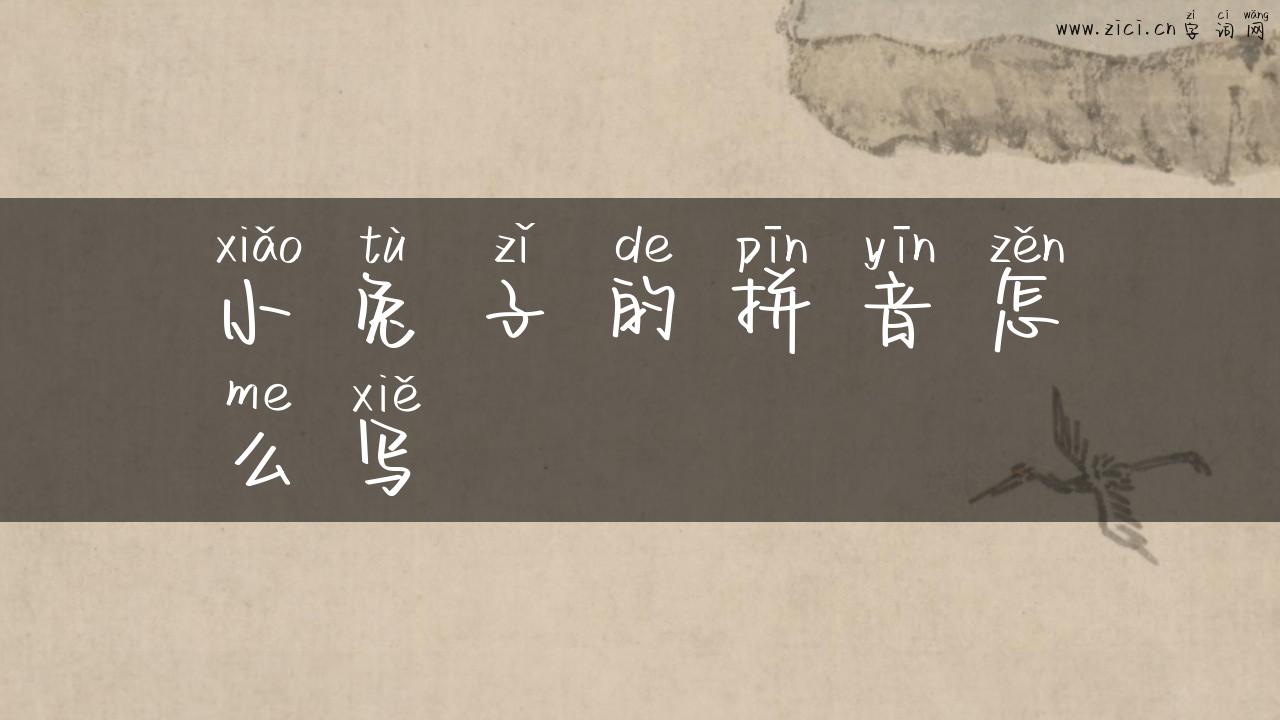 zì cí wǎng
www.zici.cn 字 词 网
xiǎo tù zǐ de pīn yīn zěn
小 兔 子 的 拼 音 怎
me xiě
么 写